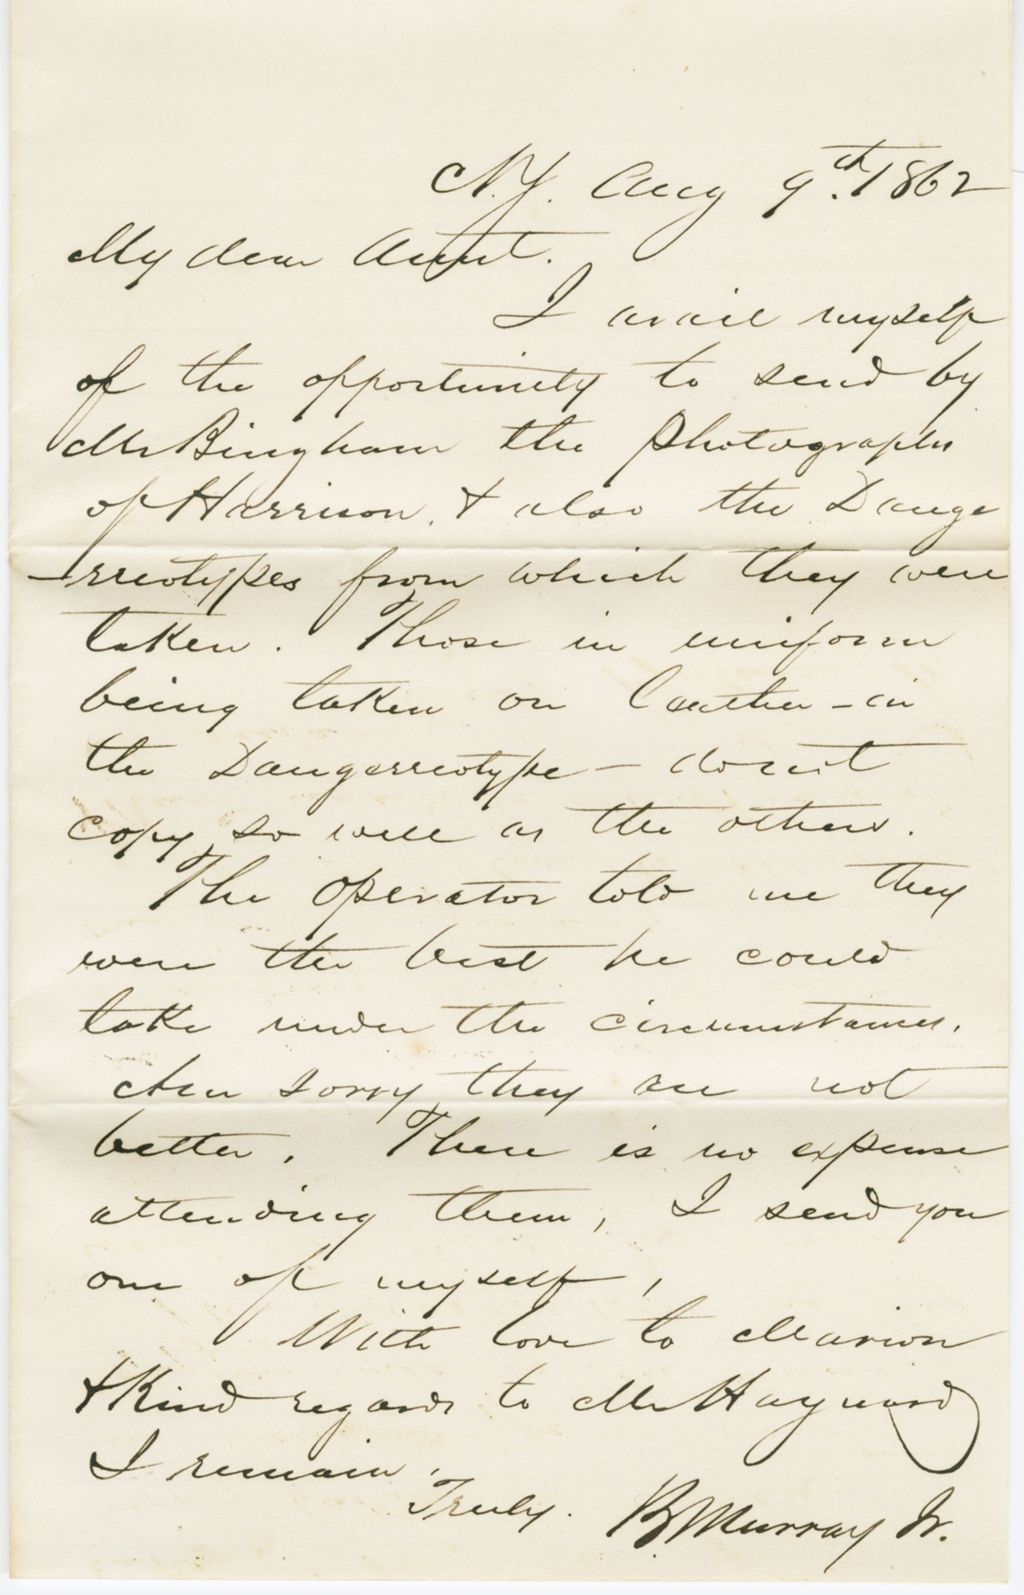 N.Y. Aug 9th. 1862
My dear Aunt.
I avail myself
of the opportunity to send by
Mr Bingham the Photographs
of Harrison. & also the Dauge
-rreotypes from which they were
taken. Those in uniform
being taken on leather - in
the Daugerreotype - dont
copy so well as the others.
The operator told me they
were the best he could
take under the circumstances.
Am sorry they are not
better. There is no expense
attending them, I send you
one of myself,
With love to Marion
& Kind regards to Mr Hayward
I remain.
Truly. B. Murray Jr.